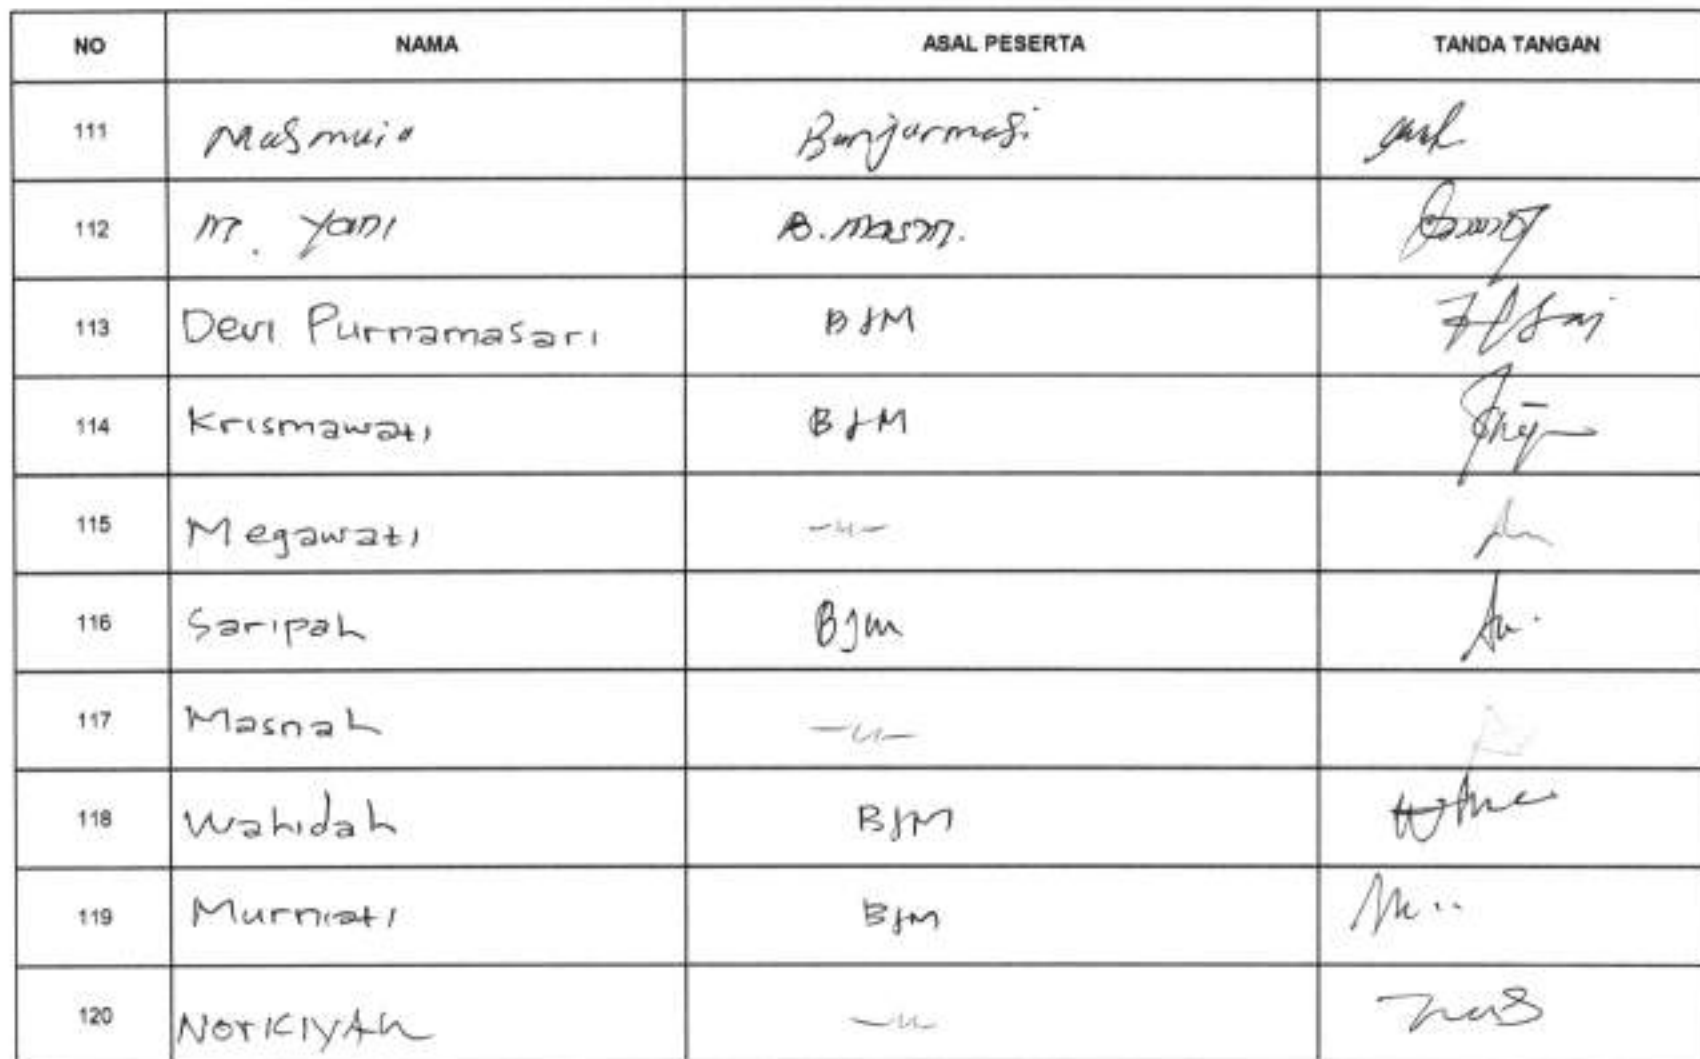 NO NAMA ASAL PESERTA TANDA TANGAN
111 Masmuia Banjarmasi
112 M. Yani B.masm.
113 Devi Purnamasari BJM
114 Krismawati BJM
115 Megawati —〃—
116 Saripah Bjm
117 Masnah —〃—
118 Wahidah BJM
119 Murniati BJM
120 NORKIYAH —〃—